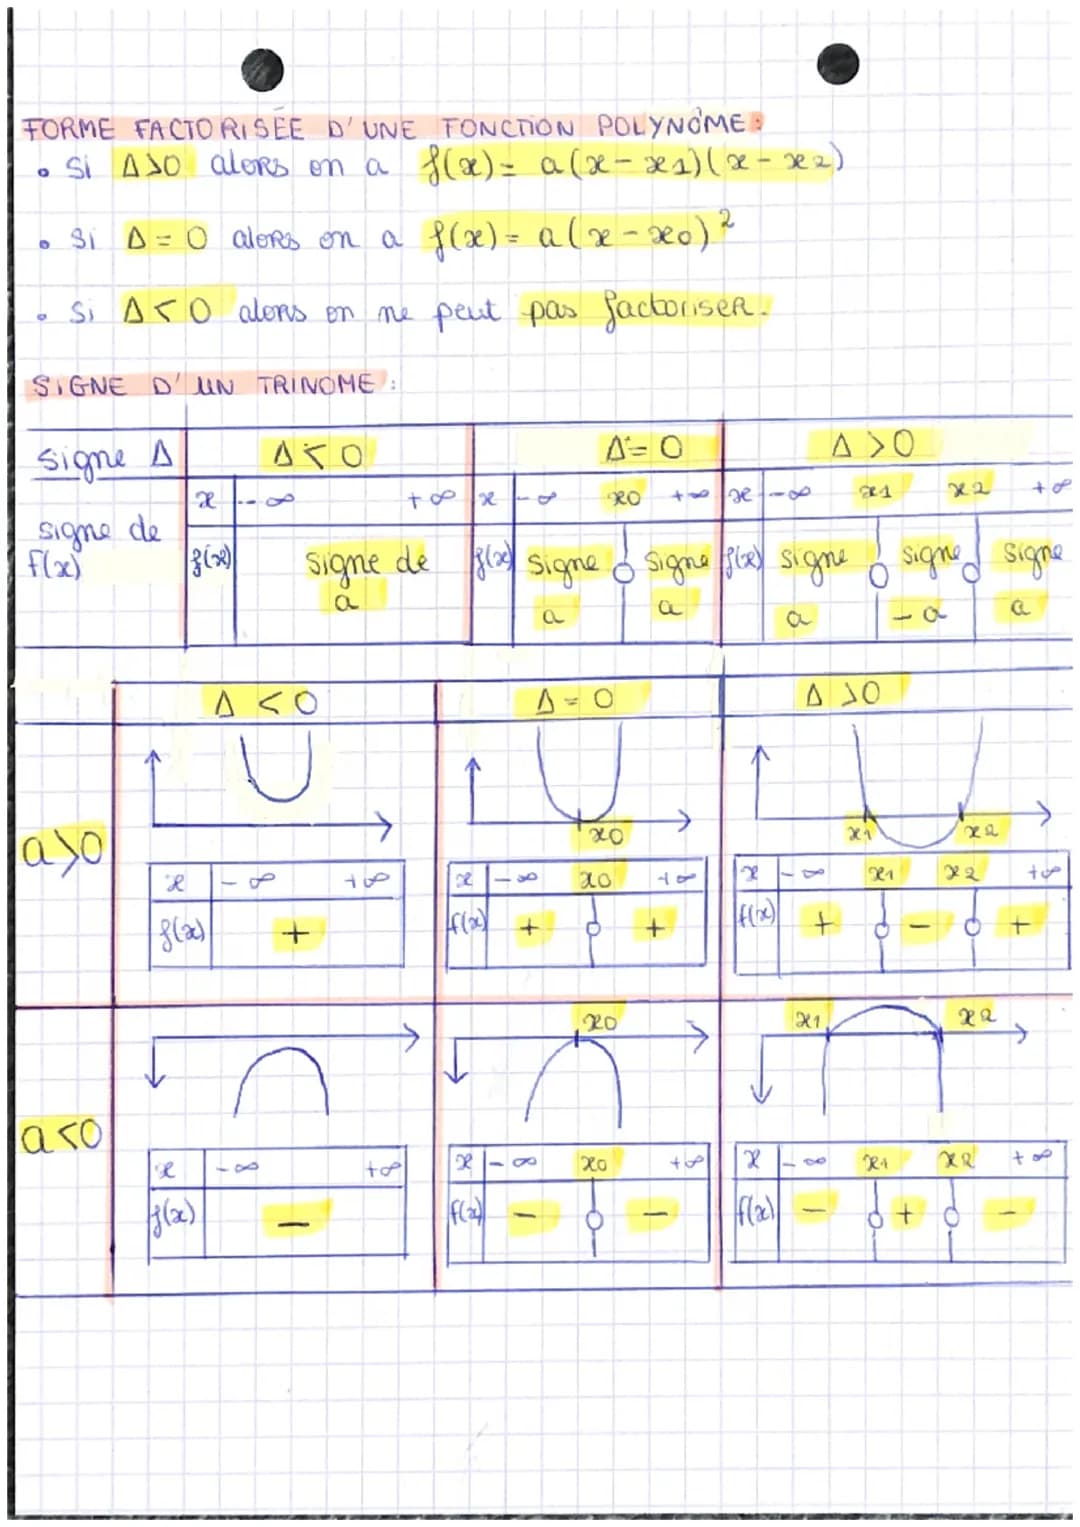 FORME FACTORISÉE D'UNE FONCTION POLYNÔME:
• Si Δ>0 alors on a f(x) = a(x-x1)(x-x2)
• Si Δ=0 alors on a f(x) = a(x-x0)²
• Si Δ<0 alors on ne peut pas factoriser.
SIGNE D'UN TRINOME:
signe Δ Δ<0 Δ=0 Δ>0
x -∞ +∞ x -∞ x0 +∞ x -∞ x1 x2 +∞
signe de f(x)
f(x) signe de a f(x) signe a signe a f(x) signe a signe -a signe a
Δ<0 Δ=0 Δ>0
a>0
x0 x1 x2
x -∞ +∞ x -∞ x0 +∞ x -∞ x1 x2 +∞
f(x) + f(x) + 0 + f(x) + 0 - 0 +
x0 x1 x2
a<0
x -∞ +∞ x -∞ x0 +∞ x -∞ x1 x2 +∞
f(x) - f(x) - 0 - f(x) - 0 + 0 -